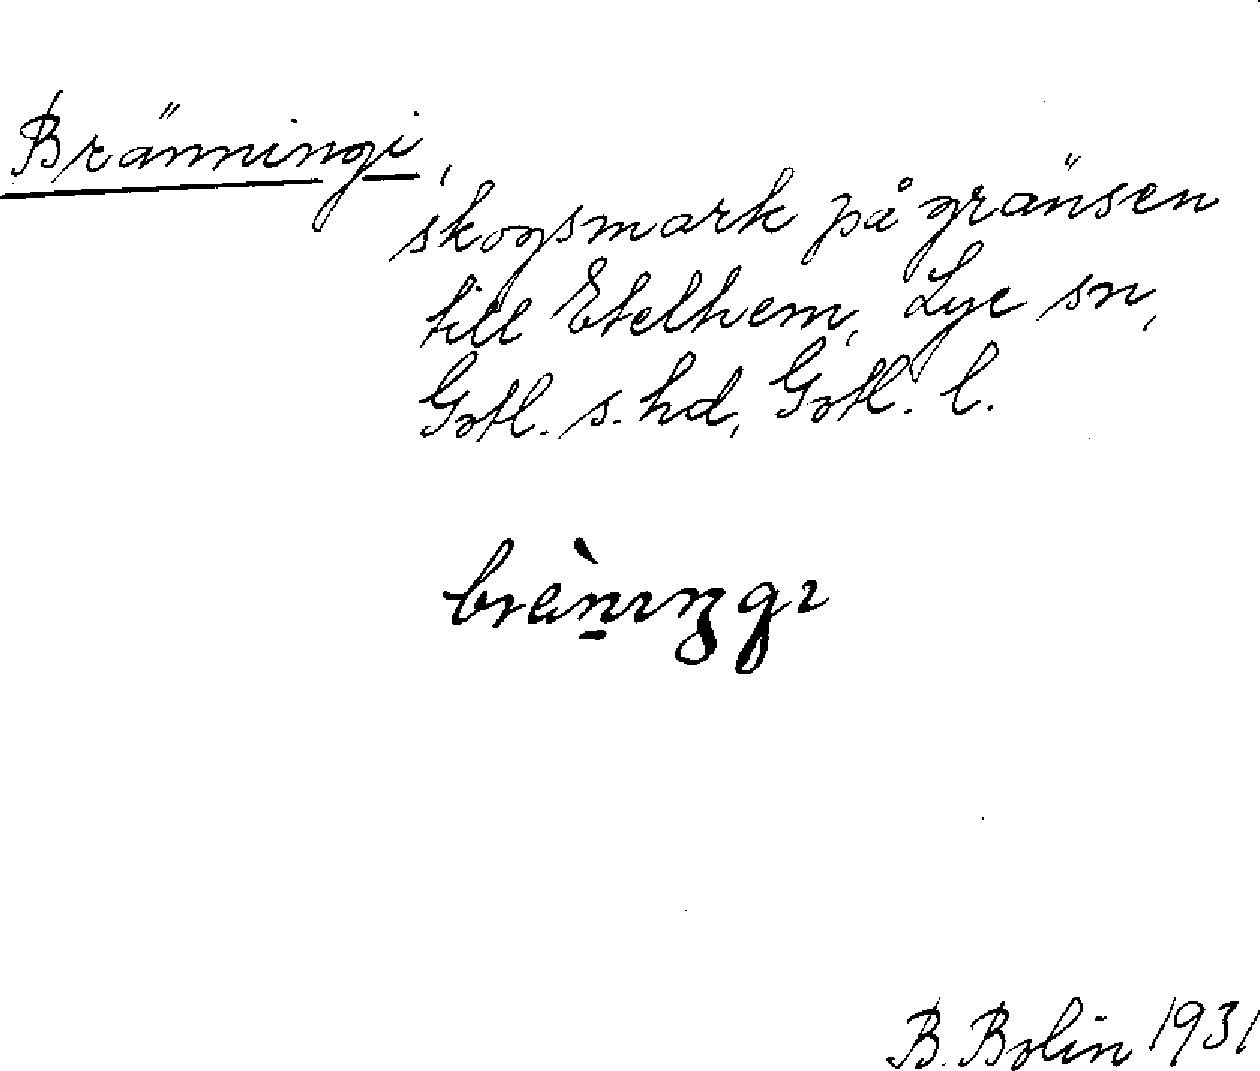 Bränningi,
skogsmark på gränsen
till Etelhem, Lye sn,
Gotl. s. hd, Gotl. l.
B. Bolin 1931